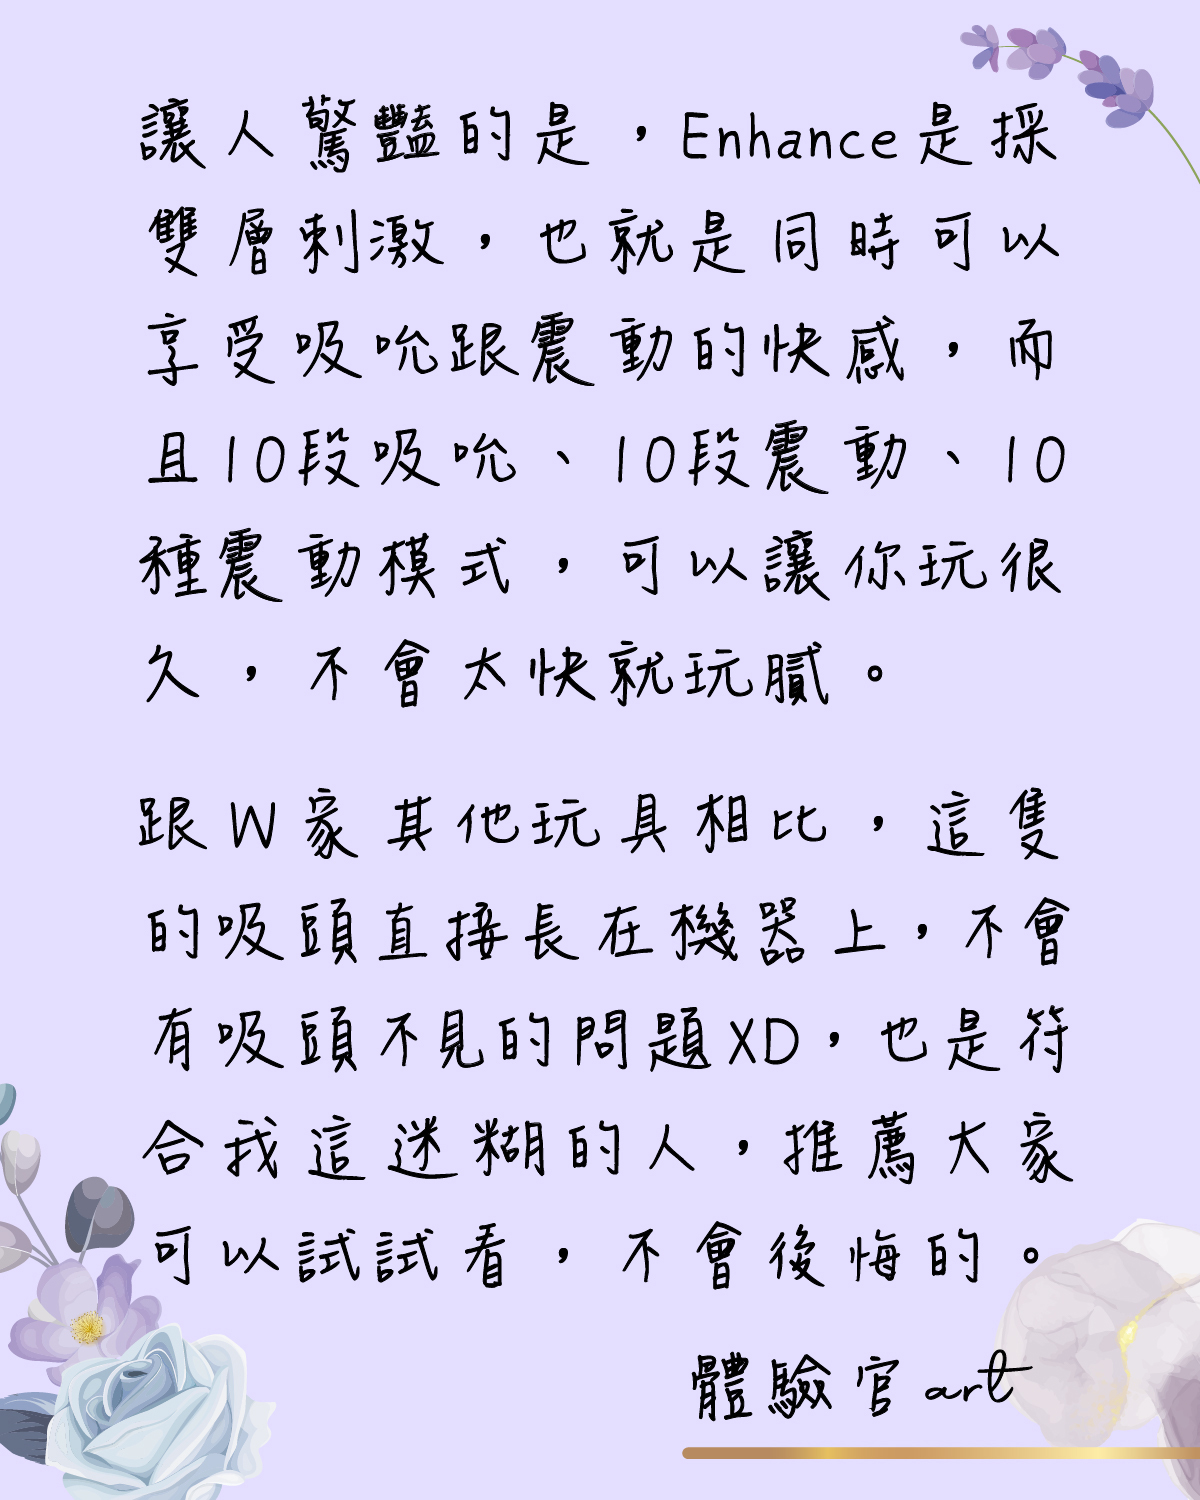 讓人驚豔的是，Enhance是採
雙層刺激，也就是同時可以
享受吸吮跟震動的快感，而
且10段吸吮、10段震動、10
種震動模式，可以讓你玩很
久，不會太快就玩膩。
跟W家其他玩具相比，這隻
的吸頭直接長在機器上，不會
有吸頭不見的問題XD，也是符
合我這迷糊的人，推薦大家
可以試試看，不會後悔的。
體驗官art